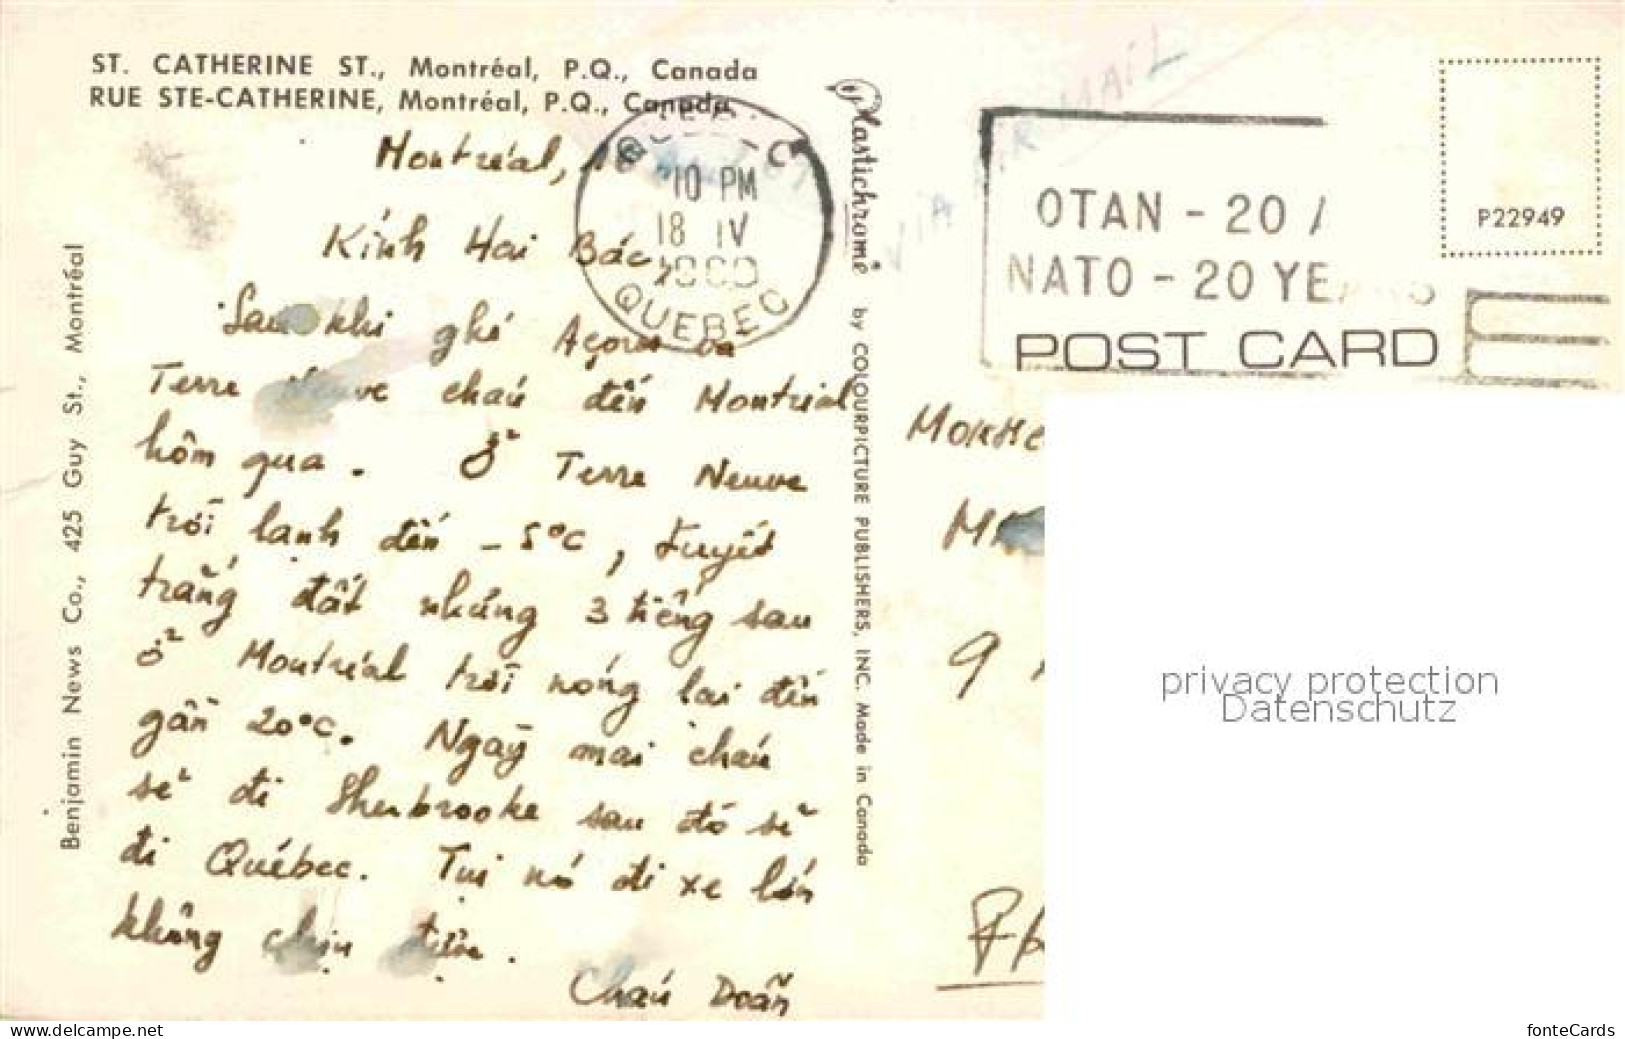 ST. CATHERINE ST., Montréal, P.Q., Canada
RUE STE-CATHERINE, Montréal, P.Q., Canada
Montréal, 18
Kính Hai Bác,
Sau khi ghé Açores và
Terre Neuve cháu đến Montréal
hôm qua. Ở Terre Neuve
trời lạnh đến -5°C, tuyết
trắng đất nhưng 3 tiếng sau
ở Montréal trời nóng lại đến
gần 20°C. Ngày mai cháu
sẽ đi Sherbrooke sau đó sẽ
đi Québec. Tụi nó đi xe lớn
không chịu
Cháu Doãn
Benjamin News Co., 425 Guy St., Montréal
QUEBEC
10 PM
18 IV
QUEBEC
Plastichrome by COLOURPICTURE PUBLISHERS, INC. Made in Canada
VIA AIR MAIL
OTAN - 20
NATO - 20 YEARS
P22949
POST CARD
9
privacy protection
Datenschutz
www.ansichtskartenversand.com
fonteCards